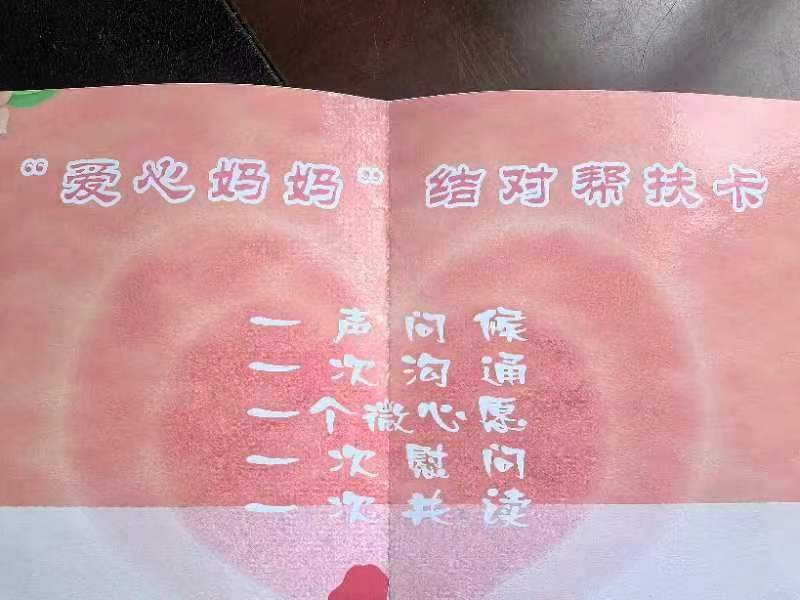 “爱心妈妈”结对帮扶卡
一声问候
一次沟通
一个微心愿
一次慰问
一次共读